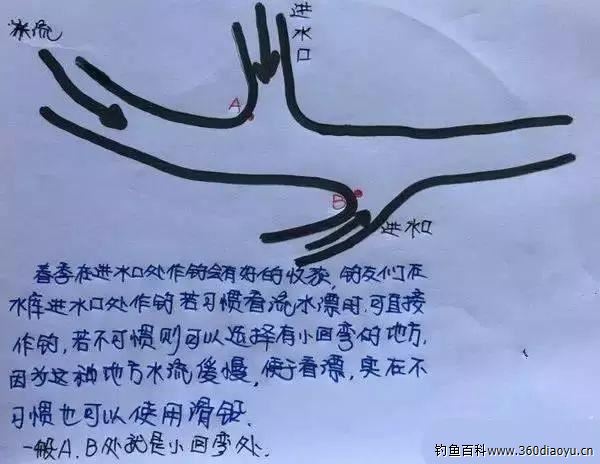 水流
进水口
A
B
进水口
春季在进水口处作钓会有好的收获,钓友们在
水库进水口处作钓若习惯看流水漂时,可直接
作钓,若不习惯则可以选择有小回弯的地方,
因为这种地方水流缓慢,便于看漂,实在不
习惯也可以使用滑铅.
一般A.B处就是小回弯处.
钓鱼百科www.360diaoyu.cn